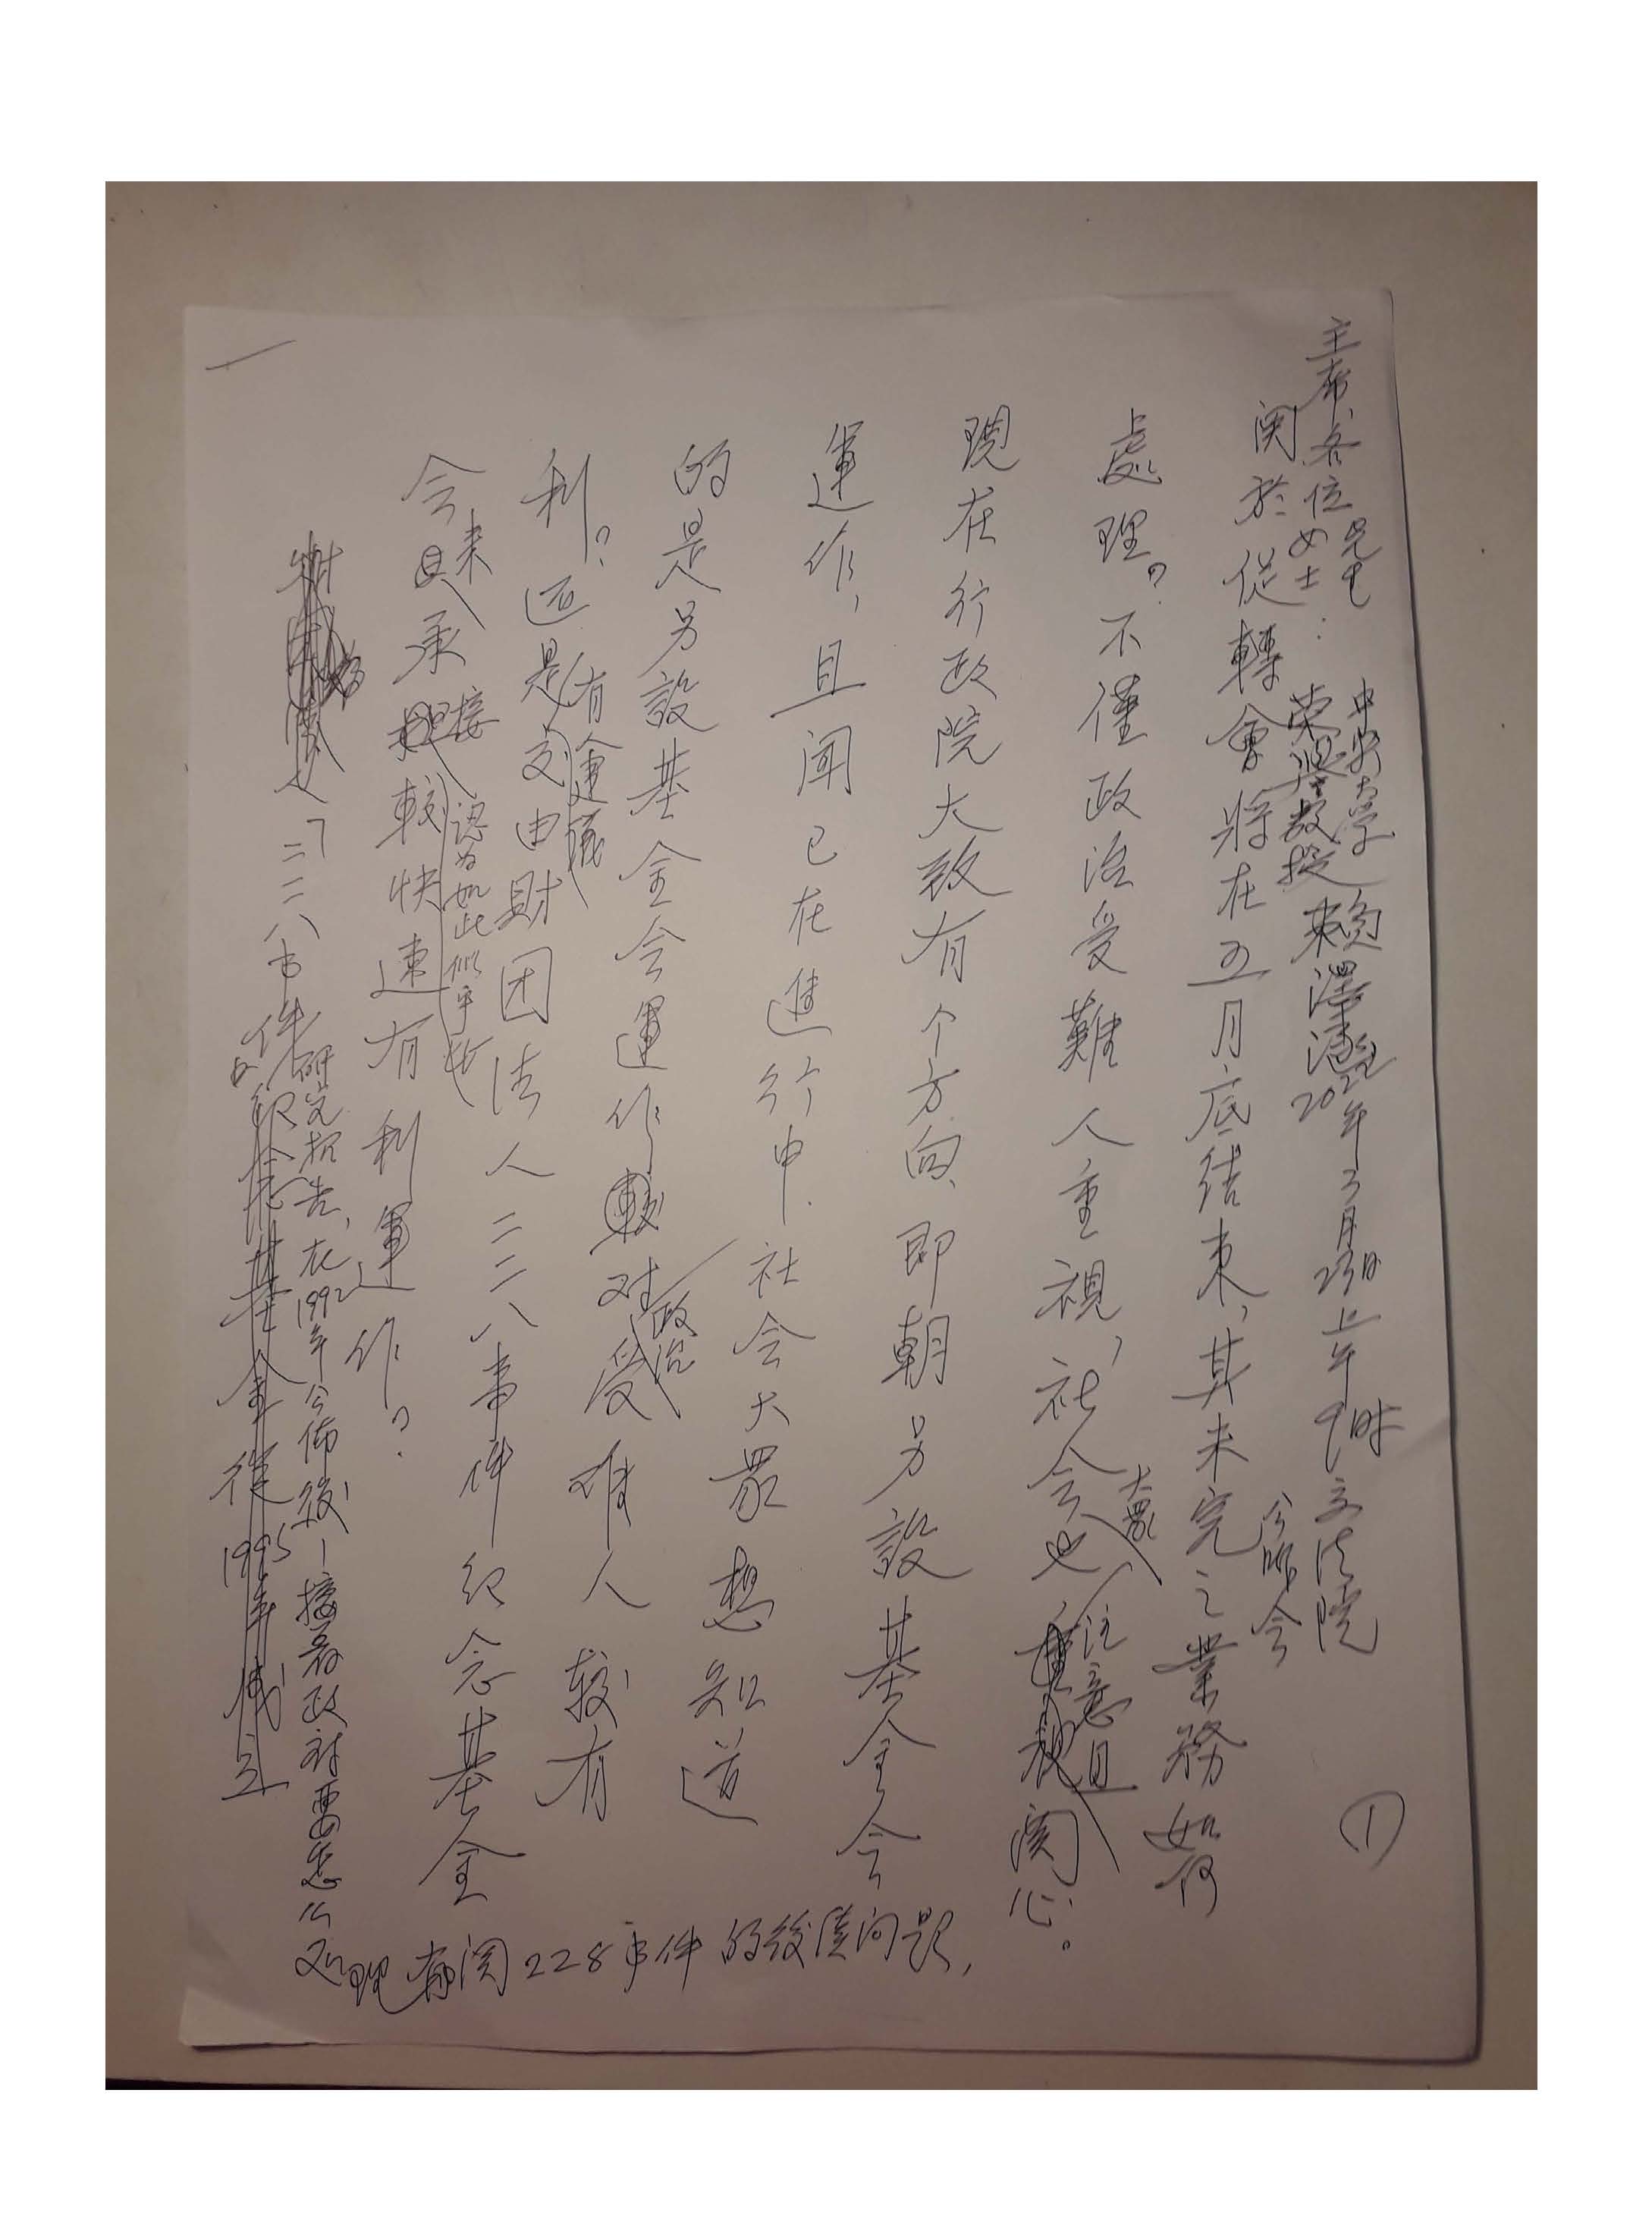 ①
中央大学
榮譽教授 賴澤涵 2022年3月23日上午9時立法院
公听会
主席、各位女士先生:
関於促轉會將在五月底结束,其未完之業務如何
處理?不僅政治受難人重視,社会大眾也注意且関心。
現在行政院大致有个方向,即朝另設基金会
運作,且聞已在進行中.社会大眾想知道
的是另設基金会運作对政治受难人較有
利?还是有人建議交由財団法人二二八事件纪念基金
会來承接認为如此似乎較快速有利運作?
二二八事件研究报告,在1992年公佈後,接着政府要怎么
处理有関228事件的後續问題,